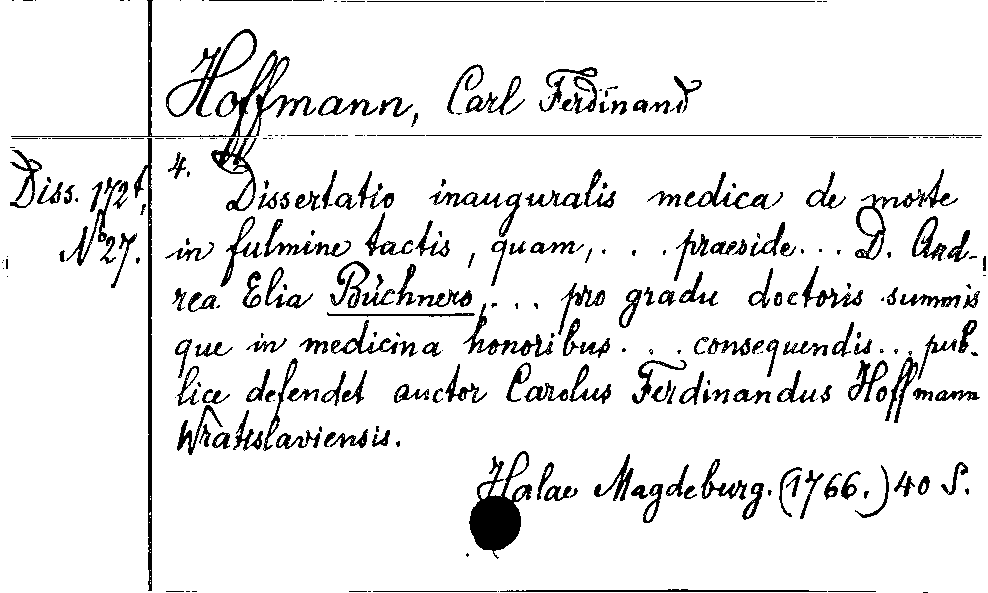 Hoffmann, Carl Ferdinand
Diss. 172t,
No 27.
4. Dissertatio inauguralis medica de morte
in fulmine tactis, quam, . . . praeside... D. And-
rea Elia Büchnero, ... pro gradu doctoris summis
que in medicina honoribus . . . consequendis... pub-
lice defendet auctor Carolus Ferdinandus Hoffmann
Wratislaviensis.
Halae Magdeburg. (1766.) 40 S.